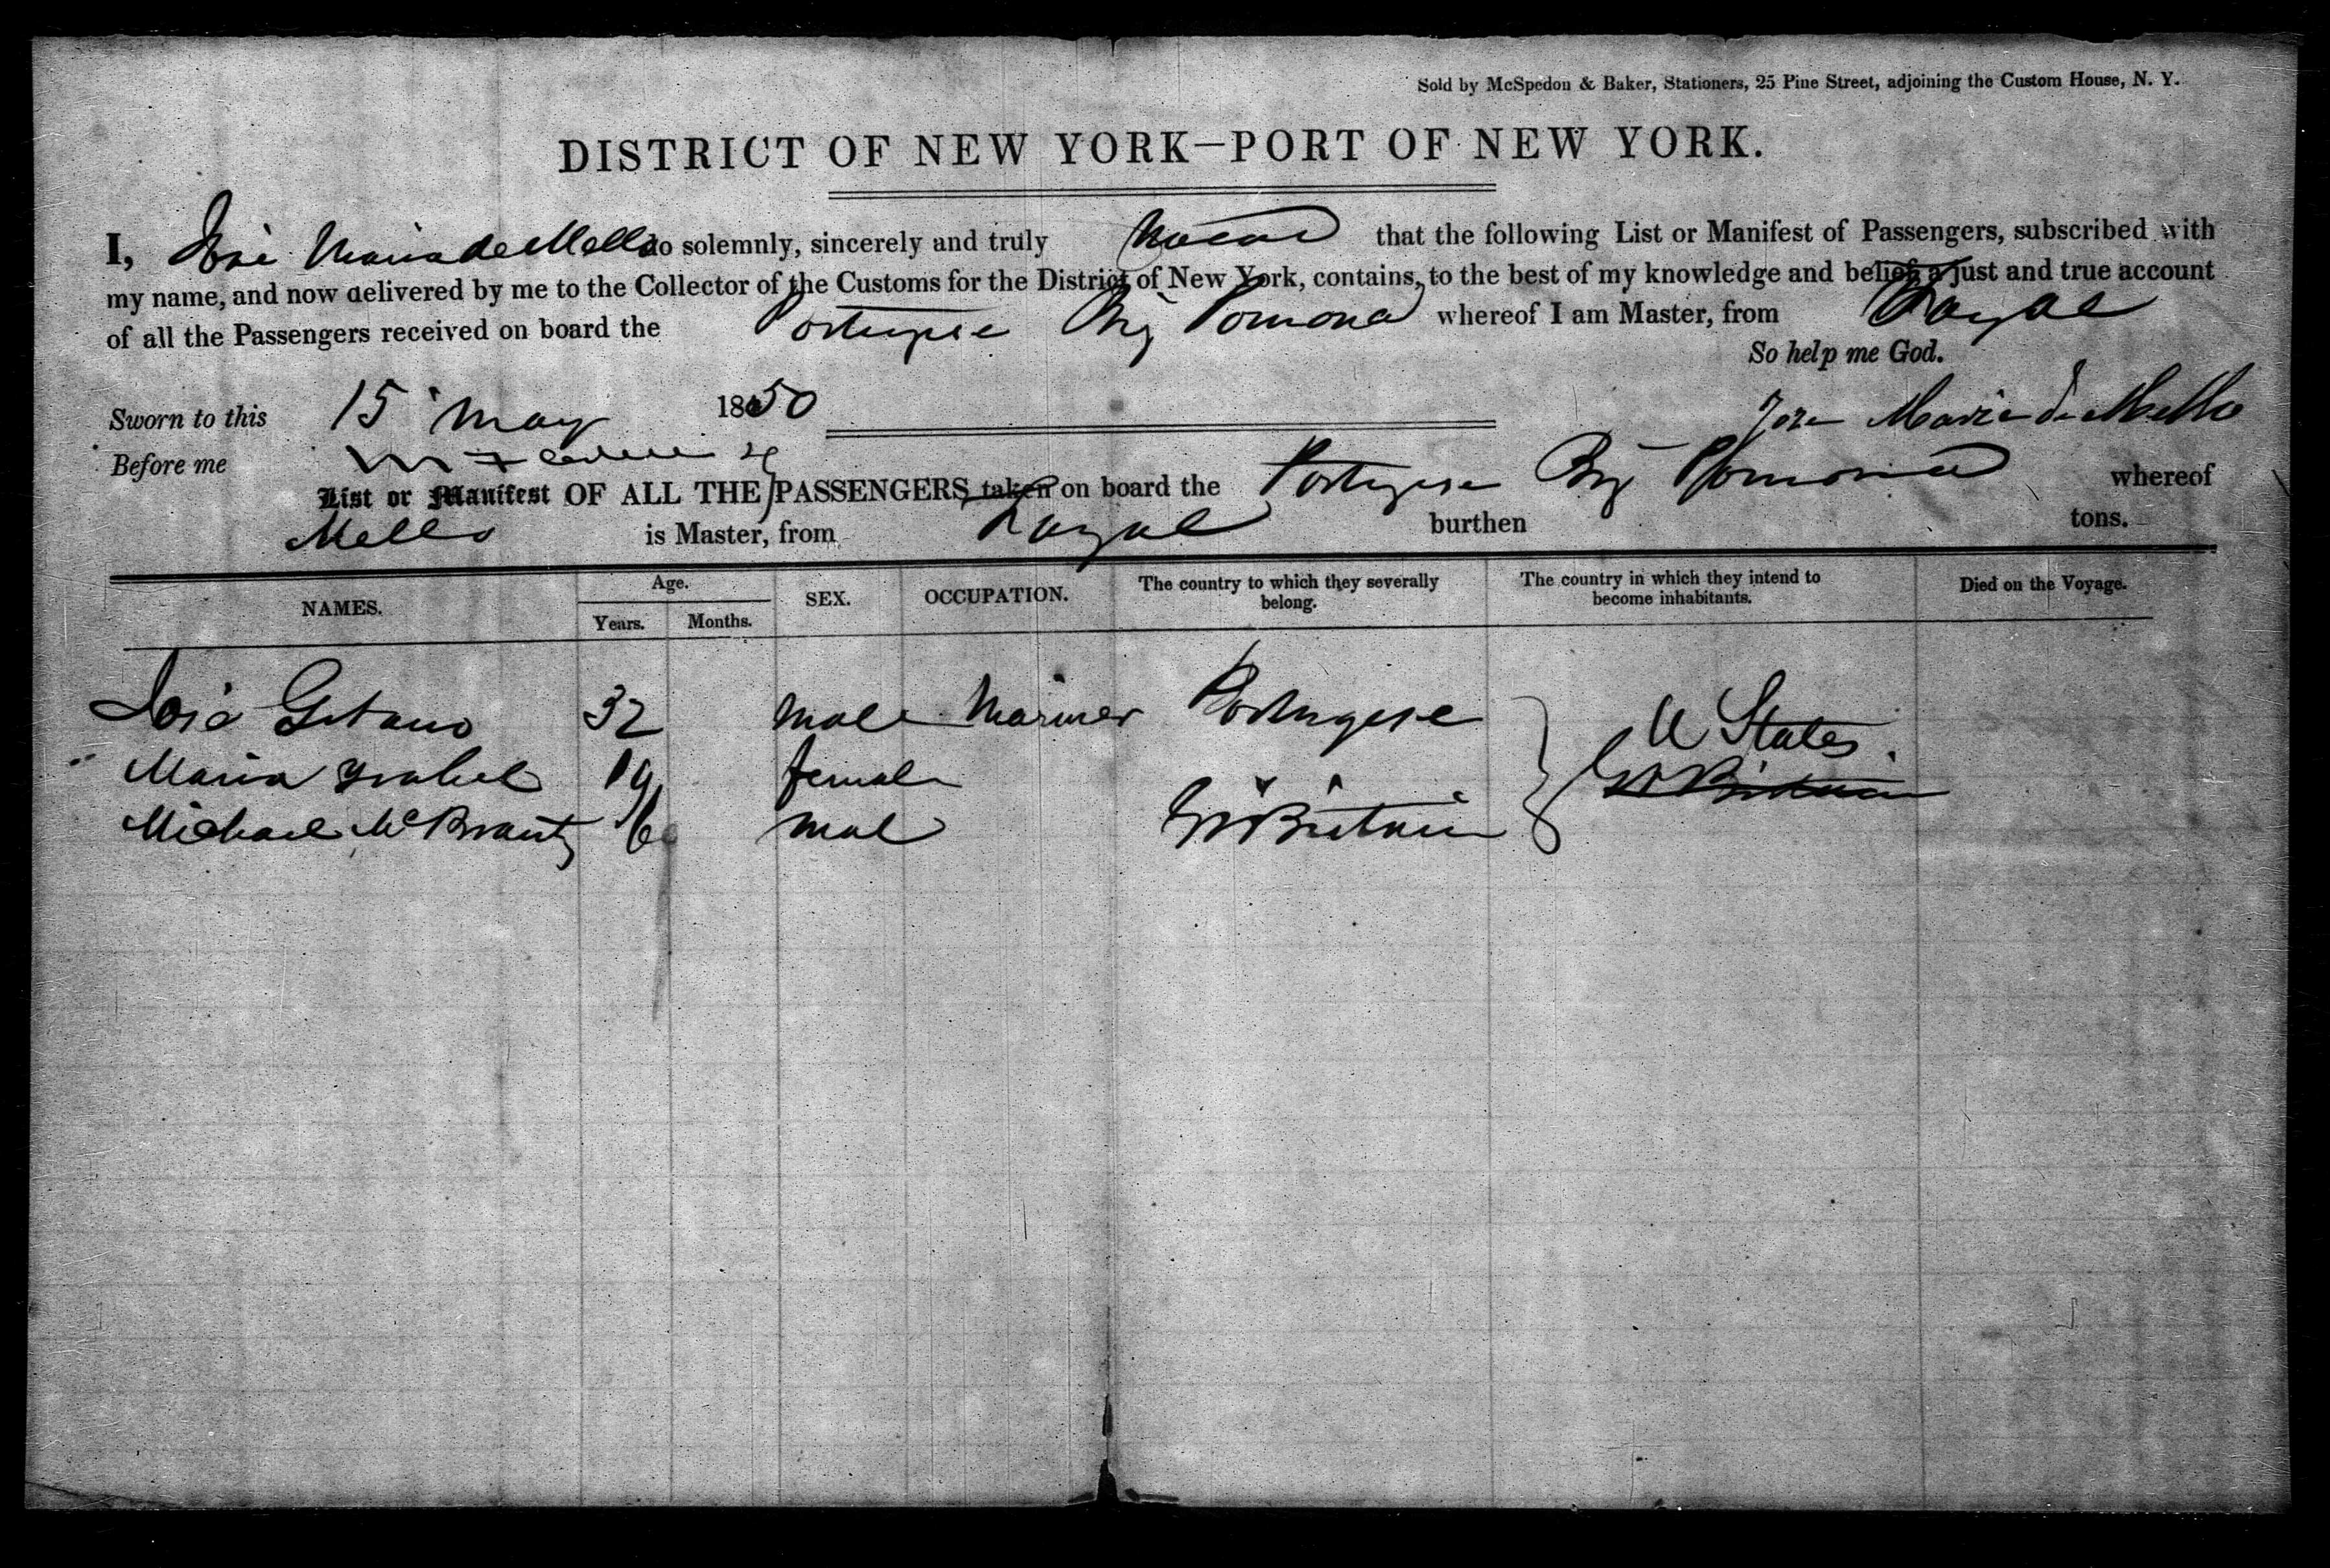 Sold by McSpedon & Baker, Stationers, 25 Pine Street, adjoining the Custom House, N. Y.
DISTRICT OF NEW YORK—PORT OF NEW YORK.
I, José Maria de Mello do solemnly, sincerely and truly swear that the following List or Manifest of Passengers, subscribed with
my name, and now delivered by me to the Collector of the Customs for the District of New York, contains, to the best of my knowledge and belief, a just and true account
of all the Passengers received on board the Portugese Brig Pomona whereof I am Master, from Fayal
So help me God.
Sworn to this 15 May 1850
Jose Maria de Mello
Before me
List or Manifest OF ALL THE PASSENGERS taken on board the Portugese Brig Pomona whereof
Mello is Master, from Fayal burthen tons.
NAMES. Age. Years. Months. SEX. OCCUPATION. The country to which they severally belong. The country in which they intend to become inhabitants. Died on the Voyage.
José 32 male Mariner Portugese U States.
Maria Ysabel 19 female " " Gt Britain
Michael 16 male Gt Britain